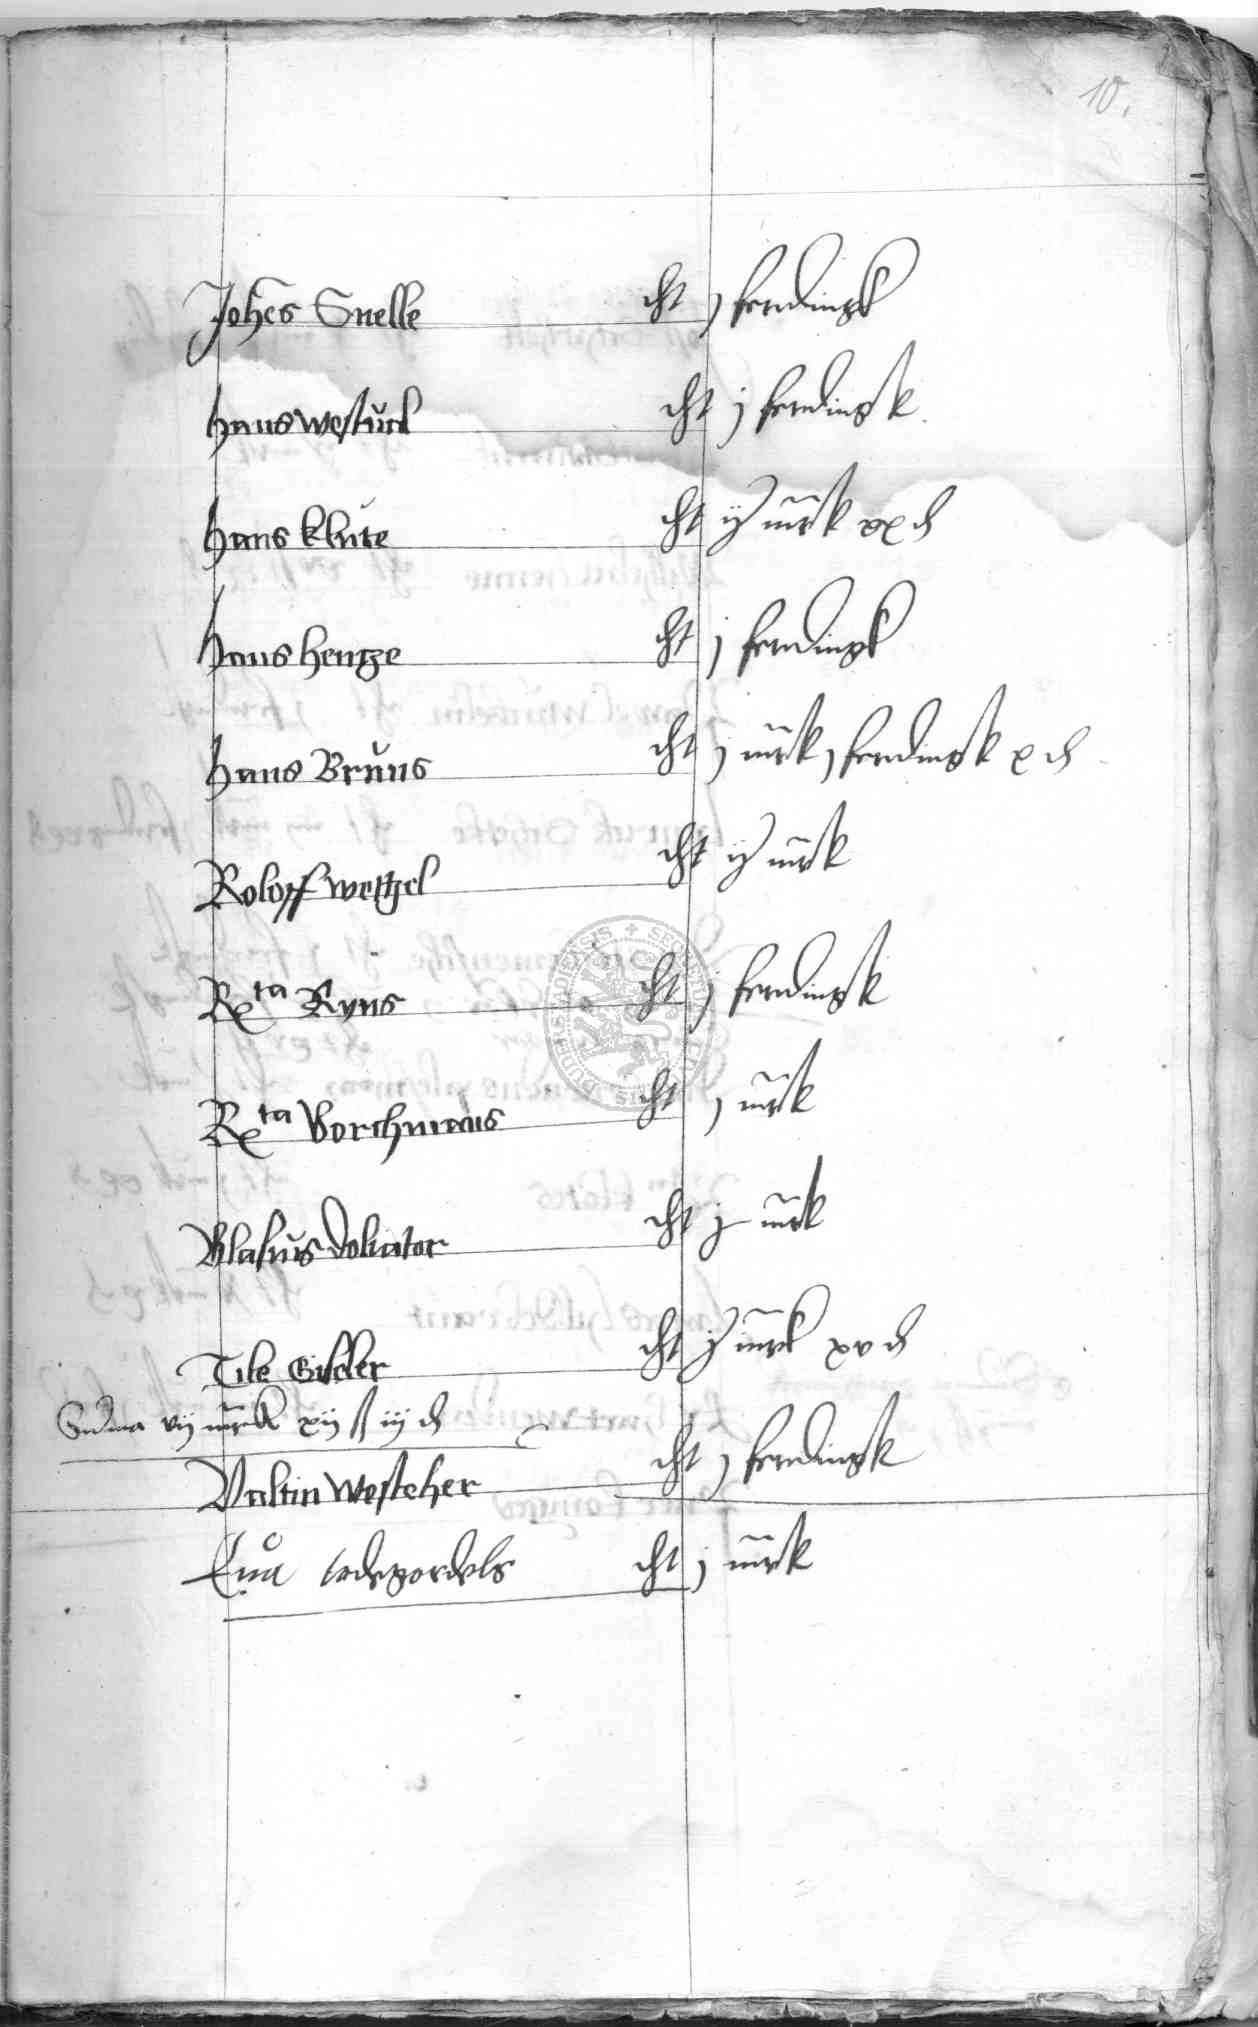 10.
Johes Snelle cht j ferdingk
hans westual cht j ferdingk
hans klute cht ij mrk xx d
hans hentze cht j ferdingk
hans Bruns cht j mrk j ferdingk x d
Roloff wettzel cht ij mrk
Rta Ryns cht j ferdingk
Rta Borchmans cht j mrk
Blasius doliator cht j mrk
Tile Gißler cht ij mrk xv d
Summa vij mrk xij ß iij d
Valtin Westeher cht j ferdingk
cht j mrk